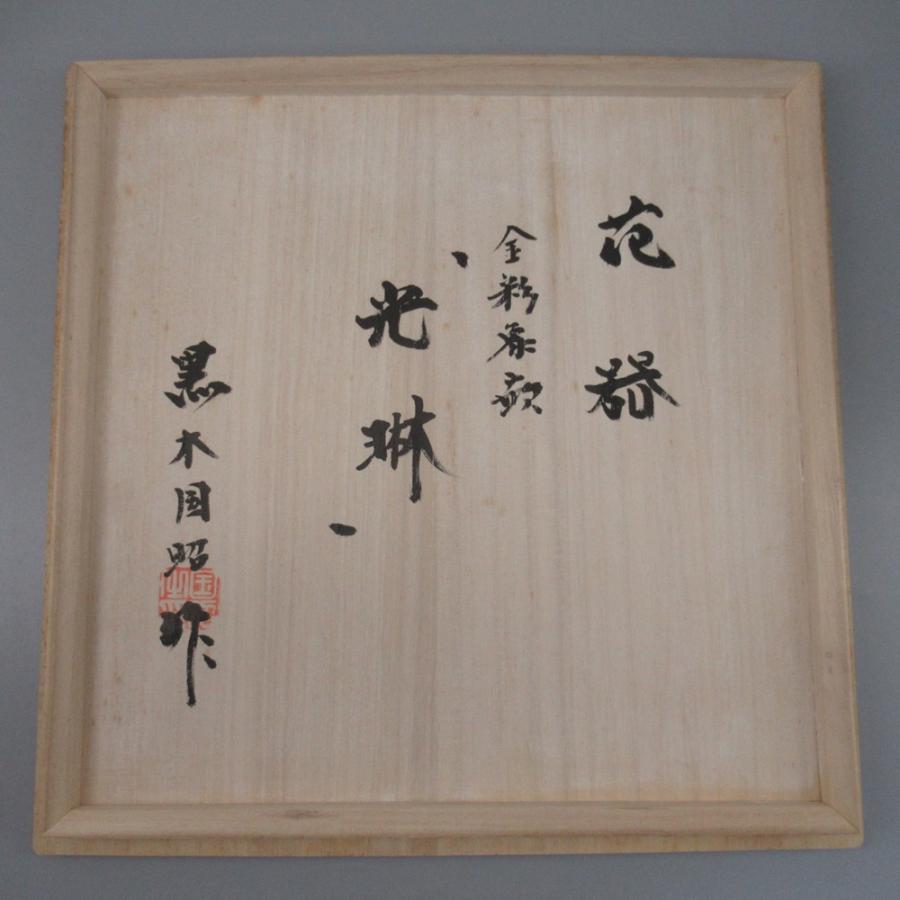 花器
金彩象嵌
"光琳"
黒木国昭作